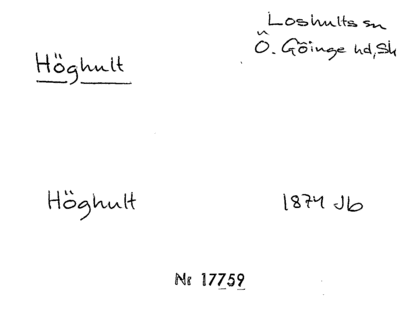 Loshults sn
Höghult
Ö. Göinge hd, Sk
Höghult
1874 Jb
Nr 17759